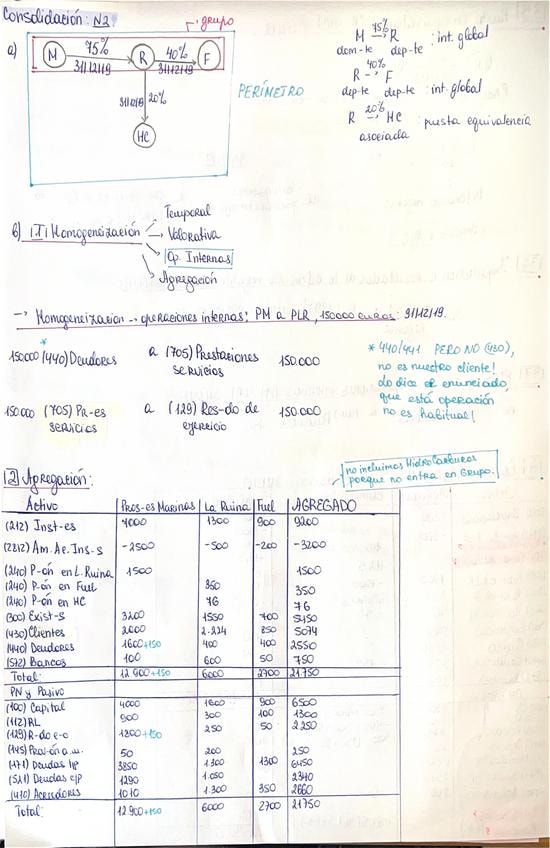 Consolidación: N2.
grupo
a)
M 75% R 40% F
31/12/19 31/12/19
31/12/19 20%
HC
PERÍMETRO
M 75% → R : int. global
dom-te dep-te
R 40% → F
dep-te dep-te : int. global
R 20% → HC : puesta equivalencia
asociada
b) 1. Homogeneización
Temporal
Valorativa
Op. Internas
Agregación
→ Homogeneizacion → operaciones internas: PM a PLR, 150000 euros: 31/12/19.
*
150.000 (440) Deudores a (705) Prestaciones 150.000
servicios
150.000 (705) Pr-es a (129) Res-do de 150.000
servicios ejercicio
* 440/441 PERO NO (430),
no es nuestro cliente!
Lo dice el enunciado,
que está operación
no es habitual!
2 Agregación:
no incluimos Hidrocarburos
porque no entra en Grupo.
Activo Pros-es Marinas La Ruina Fuel AGREGADO
(212) Inst-es 7000 1300 900 9200
(2812) Am. Ac. Ins-s -2500 -500 -200 -3200
(240) P-ón en L. Ruina 1500 1500
(240) P-ón en Fuel 350 350
(240) P-ón en HC 76 76
(300) Exist-s 3200 1550 700 5450
(430) Clientes 2000 2.224 850 5074
(440) Deudores 1600+150 400 400 2550
(572) Bancos 100 600 50 750
Total: 12 900+150 6000 2700 21.750
PN y Pasivo
(100) Capital 4000 1600 900 6500
(112) RL 900 300 100 1300
(129) R-do e-o 1800+150 250 50 2250
(145) Prov-ón a.u. 50 200 250
(171) Deudas l/p 3850 1300 1300 6450
(521) Deudas c/p 1290 1.050 2340
(410) Acreedores 1010 1.300 350 2660
Total: 12 900+150 6000 2700 21750